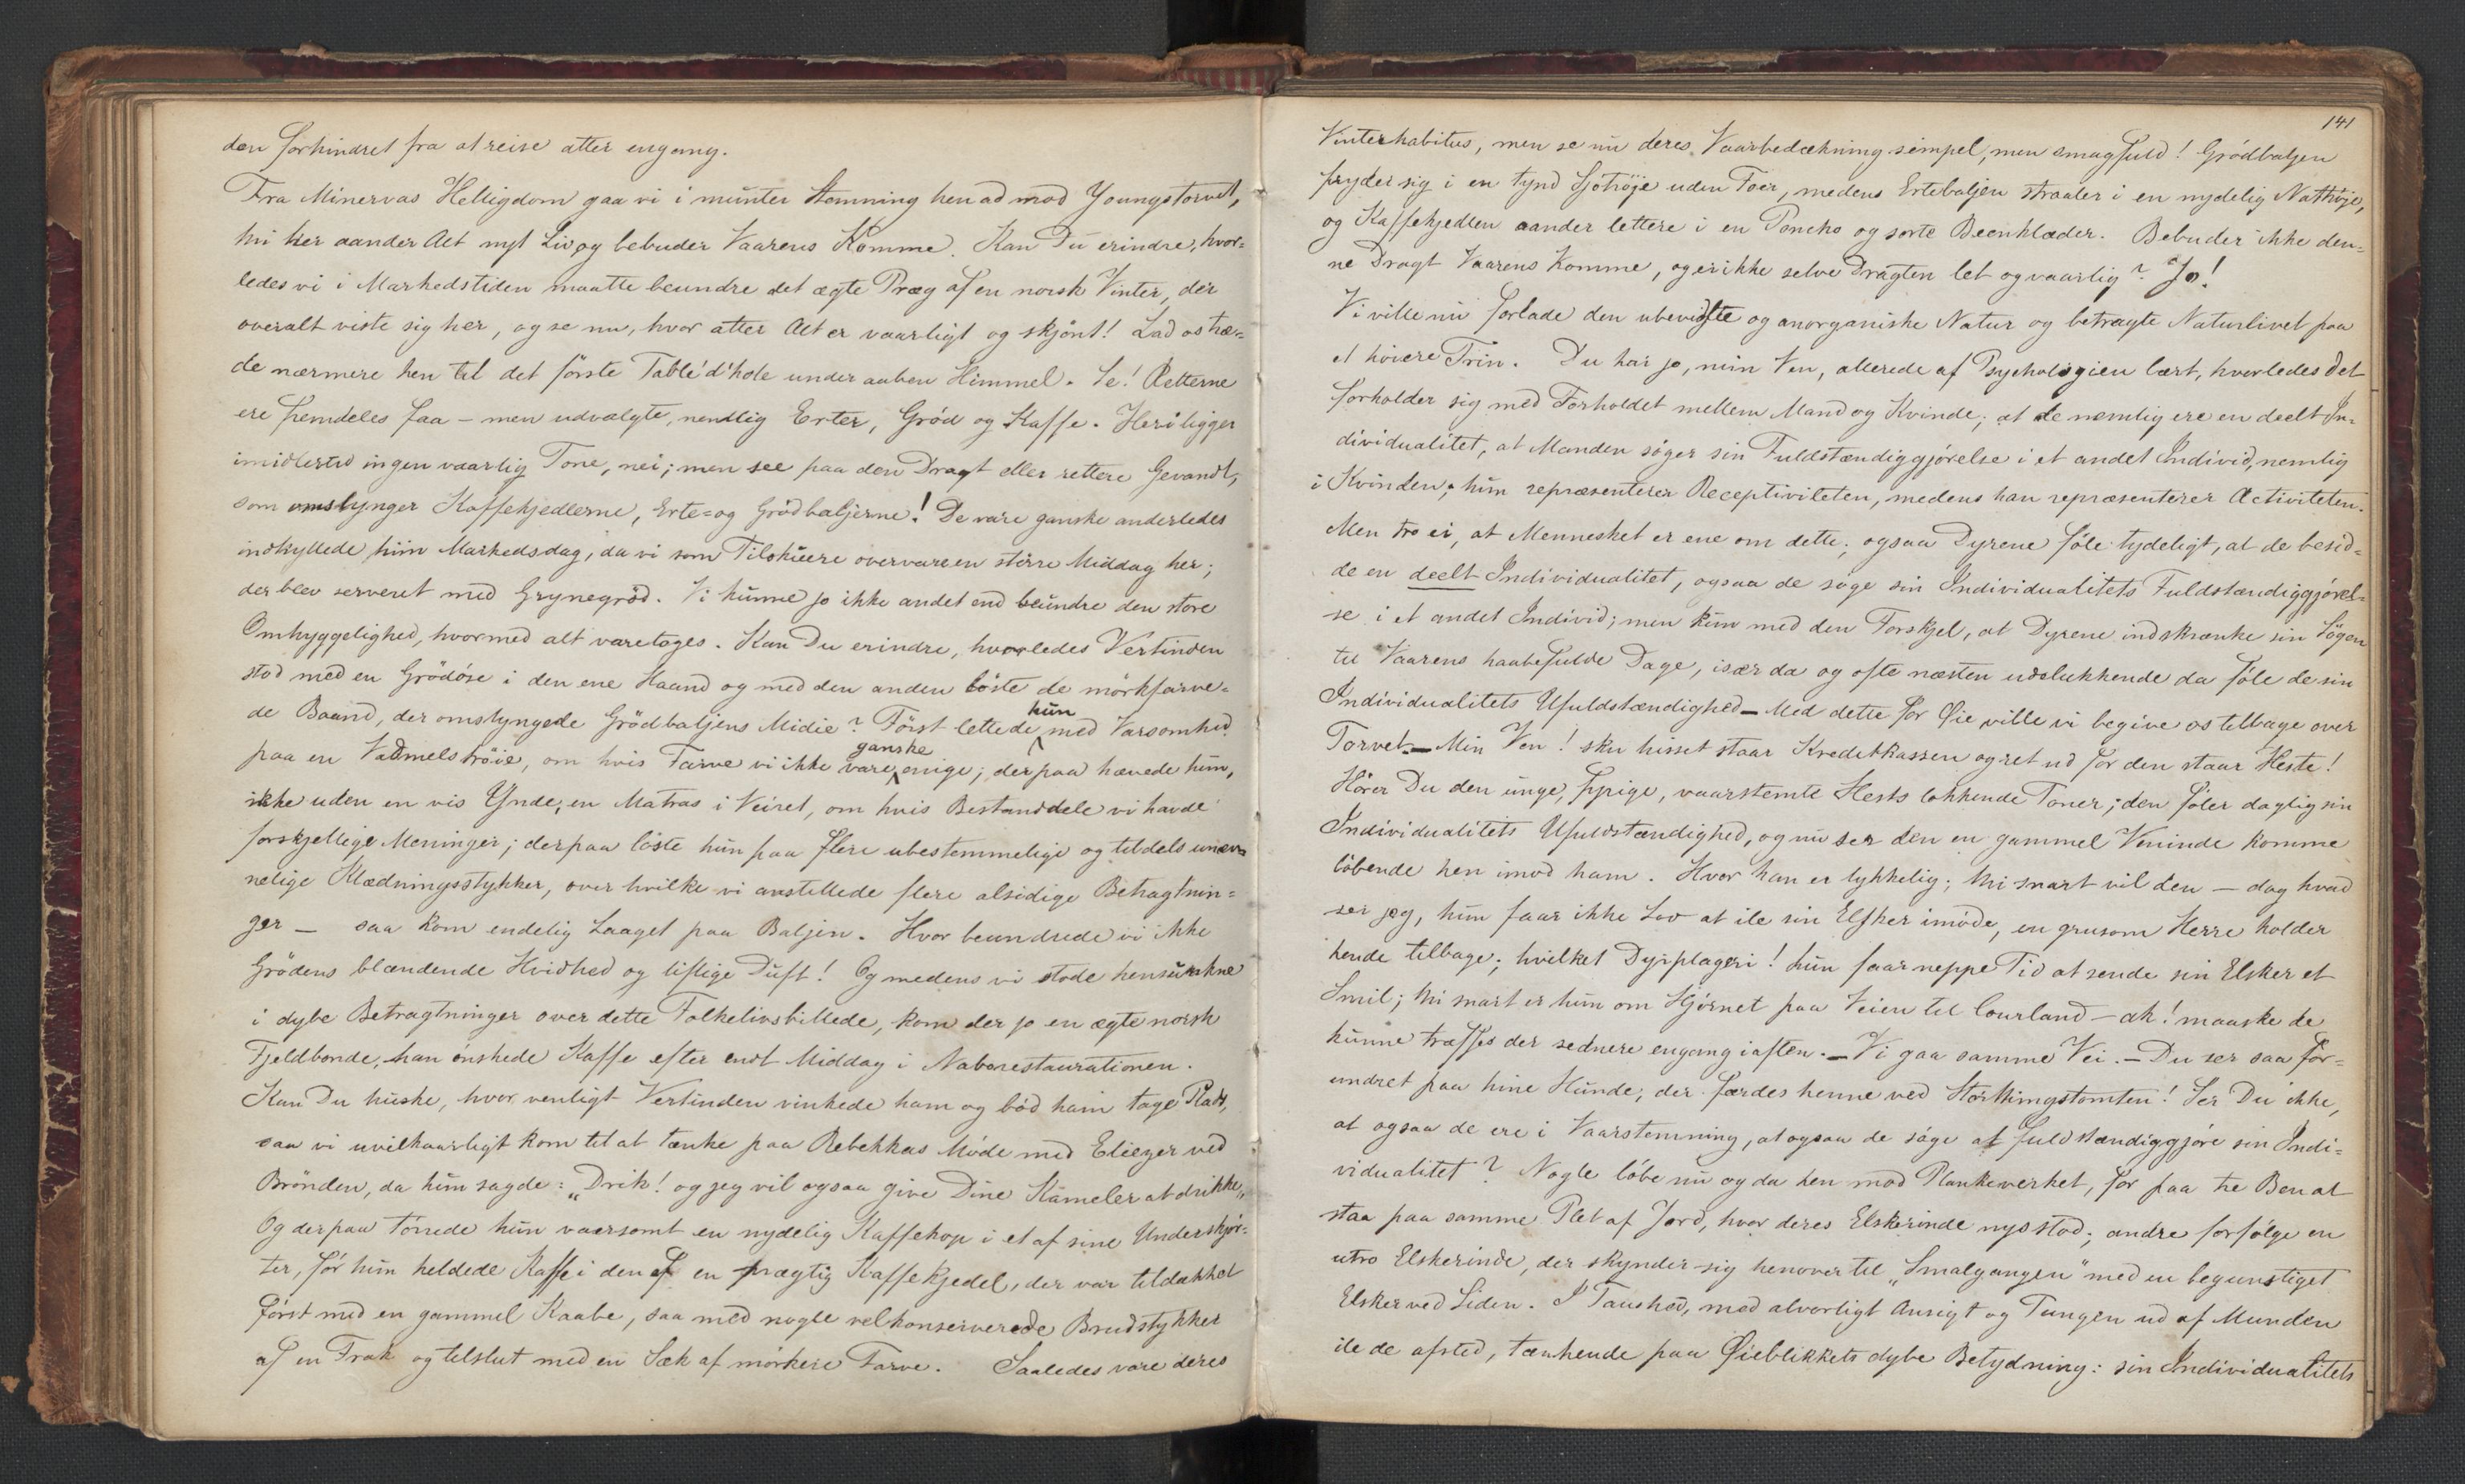 den forhindret fra at reise atter engang.
Fra Minervas Helligdom gaa vi i munter Stemning hen ad mod Youngstorvet,
thi her aander Alt nyt Liv og bebuder Vaarens Komme. Kan Du erindre, hvor-
ledes vi i Markedstiden maatte beundre det ægte Præg af en norsk Vinter, der
overalt viste sig her, og se nu, hvor atter Alt er vaarligt og skjönt! Lad os træ-
de nærmere hen til det förste Table d'hote under aaben Himmel. Se! Retterne
ere fremdeles faa – men udvalgte, nemlig Erter, Gröd og Kaffe. Heri ligger
imidlertid ingen vaarlig Tone, nei; men see paa den Dragt eller rettere Gevandt,
som omslynger Kaffekjedlerne, Erte- og Grödbaljerne! De vare ganske anderledes
indhyllede hiin Markedsdag, da vi som Tilskuere overvare en större Middag her;
der blev serveret med Grynegröd. Vi kunne jo ikke andet end beundre den store
Omhyggelighed, hvormed alt varetoges. Kan Du erindre, hvorledes Vertinden
stod med en Grödöse i den ene Haand og med den anden löste de mörkfarve-
de Baand, der omslyngede Grödbaljens Midie? Först lettede hun med Varsomhed
paa en Vadmelströie, om hvis Farve vi ikke vare ganske enige; derpaa hævede hun,
ikke uden en vis Ynde, en Matras i Veiret, om hvis Bestanddele vi havde
forskjellige Meninger; derpaa löste hun paa flere ubestemmelige og tildels unæv-
nelige Klædningsstykker, over hvilke vi anstillede flere alsidige Betragtnin-
ger – saa kom endelig Laaget paa Baljen. Hvor beundrede vi ikke
Grödens blændende Hvidhed og liflige Duft! Og medens vi stode hensunkne
i dybe Betragtninger over dette Folkelivsbillede, kom der jo en ægte norsk
Fjeldbonde, han önskede Kaffe efter endt Middag i Naborestaurationen.
Kan Du huske, hvor venligt Vertinden vinkede ham og böd ham tage Plads,
saa vi uvilkaarligt kom til at tænke paa Rebekkas Möde med Eliezer ved
Brönden, da hun sagde: „Drik! og jeg vil ogsaa give Dine Kameler at drikke„
Og derpaa törrede hun vaersomt en nydelig Kaffekop i et af sine Underskjör-
ter, för hun heldede Kaffe i den af en prægtig Kaffekjedel, der var tildækket
först med en gammel Kaabe, saa med nogle velkonserverede Brudstykker
af en Frak og tilslut med en Sæk af mörkere Farve. Saaledes vare deres
141
Vinterhabitus, men se nu deres Vaarbedækning simpel, men smagfuld! Grödbaljen
fryder sig i en tynd Sjötröje uden Foer, medens Ertebaljen straaler i en nydelig Nattröje,
og Kaffekjedlen aander lettere i en Poncho og sorte Beenklæder. Bebuder ikke den-
ne Dragt Vaarens Komme, og er ikke selve Dragten let og vaarlig? Jo!
Vi ville nu forlade den ubevidste og anorganiske Natur og betragte Naturlivet paa
et höiere Trin. Du har jo, min Ven, allerede af Psychologien lært, hvorledes det
forholder sig med Forholdet mellem Mand og Kvinde; at de nemlig ere en deelt In-
dividualitet, at Manden söger sin Fuldstændiggjörelse i et andet Individ, nemlig
i Kvinden; hun repræsenterer Receptiviteten, medens han repræsenterer Activiteten.
Men tro ei, at Mennesket er ene om dette; ogsaa Dyrene föle tydeligt, at de besid-
de en deelt Individualitet, ogsaa de söge sin Individualitets Fuldstændiggjörel-
se i et andet Individ; men kun med den Forskjel, at Dyrene indskrænke sin Sögen
til Vaarens haabefulde Dage, især da og ofte næsten udelukkende da föle de sin
Individualitets Ufuldstændighed – Med dette for Øie ville vi begive os tilbage over
Torvet. – Min Ven! sku hisset staar Kreditkassen og ret ud for den staar Heste!
Hörer Du den unge, fyrige, vaarstemte Hests lokkende Toner; den föler daglig sin
Individualitets Ufuldstændighed, og nu ser den en gammel Veninde komme
löbende hen imod ham. Hvor han er lykkelig; thi snart vil den – dog hvad
ser jeg, hun faar ikke Lov at ile sin Elsker imöde, en grusom Herre holder
hende tilbage; hvilket Dyrplageri! hun faar neppe Tid at sende sin Elsker et
Smil; thi snart er hun om Hjörnet paa Veien til Courland – ak! maaske de
kunne træffes der sednere engang iaften. – Vi gaa samme Vei. – Du ser saa for-
undret paa hine Hunde, der færdes henne ved Storthingstomten! Ser Du ikke,
at ogsaa de ere i Vaarstemning, at ogsaa de söge at fuldstændiggjöre sin Indi-
vidualitet? Nogle löbe nu og da hen mod Plankeverket, for paa tre Ben at
staa paa samme Plet af Jord, hvor deres Elskerinde nys stod; andre forfölge en
utro Elskerinde, der skynder sig henover til „Smalgangen" med en begunstiget
Elsker ved Siden. I Taushed, med alvorligt Ansigt og Tungen ud af Munden
ile de afsted, tænkende paa Øieblikkets dybe Betydning: sin Individualitets